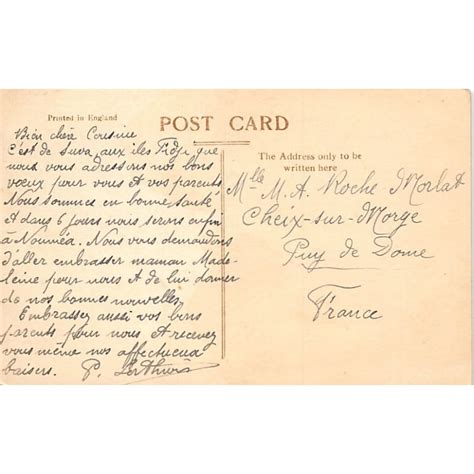 Printed in England
POST CARD
Bien chère Cousine
c'est de Suva, aux iles Fidji que
nous vous adressons nos bons
vœux pour vous & vos parents
Nous sommes en bonne santé
& dans 6 jours nous serons enfin
à Nouméa. Nous vous demandons
d'aller embrasser maman Made-
leine pour nous & de lui donner
de nos bonnes nouvelles.
Embrassez aussi vos bons
parents pour nous & recevez
vous même nos affectueux
baisers. P.
The Address only to be
written here
Mlle M. A. Roche Morlat
Cheix-sur-Morge
Puy de Dome
France